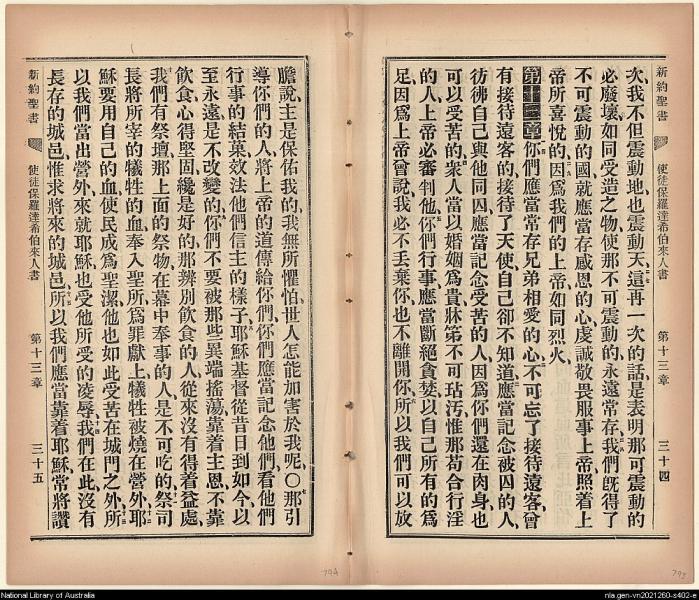 新約聖書 使徒保羅達希伯來人書 第十三章 三十四
次、我不但震動地、也震動天、這再一次的話、是表明那可震動的
必廢壞、如同受造之物、使那不可震動的、永遠常存、我們旣得了
不可震動的國、就應當存感恩的心、虔誠敬畏服事上帝、照着上
帝所喜悅的、因爲我們的上帝、如同烈火、
第十三章 你們應當常存兄弟相愛的心、不可忘了接待遠客、曾
有接待遠客的、接待了天使、自己卻不知道、應當記念被囚的人、
彷彿自己與他同囚、應當記念受苦的人、因爲你們還在肉身、也
可以受苦的、衆人當以婚姻爲貴、牀笫不可玷汚、惟那苟合行淫
的人、上帝必審判他、你們行事、應當斷絕貪婪、以自己所有的爲
足、因爲上帝曾說、我必不丟棄你、也不離開你、所以我們可以放
膽說、主是保佑我的、我無所懼怕、世人怎能加害於我呢、〇那引
導你們的人、將上帝的道傳給你們、你們應當記念他們、看他們
行事的結菓、效法他們信主的樣子、耶穌基督從昔日到如今、以
至永遠、是不改變的、你們不要被那些異端搖蕩、靠着主恩、不靠
飲食、心得堅固纔是好的、那辨別飲食的人、從來沒有得着益處、
我們有祭壇、那上面的祭物、在幕中奉事的人、是不可吃的、祭司
長將所宰的犧牲的血、奉入聖所、爲罪獻上、犧牲被燒在營外、耶
穌要用自己的血、使民成爲聖潔、他也如此受苦在城門之外、所
以我們當出營外來就耶穌、也受他所受的凌辱、我們在此沒有
長存的城邑、惟求將來的城邑、所以我們應當靠着耶穌、常將讚
新約聖書 使徒保羅達希伯來人書 第十三章 三十五
794
793
National Library of Australia
nla.gen-vn2021260-s402-e